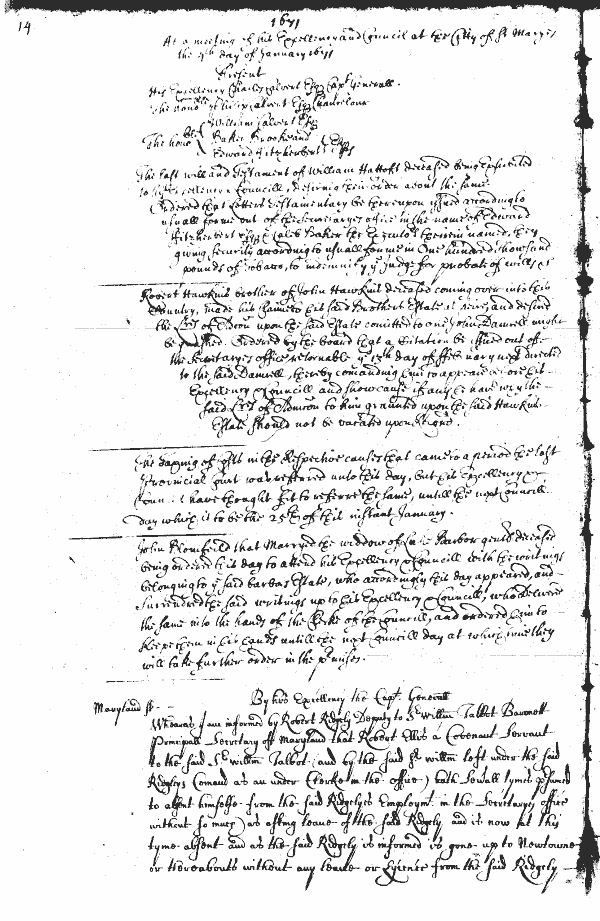 14
1671
At a meeting of his Excellency and Councill at the Citty of St Maryes
the 9th day of January 1671
Present
His Excellency Charles Calvert Esqr Capt Generall.
The honoble Philip Calvert Esqr Chancelour
William Calvert Esqr
The honoble Baker Brooke and Esqrs
Edward Fitzherbert
The Last will and Testament of William Hattoft deceased being exhibited
to his Excellency & Councill, desiring their order about the same
Ordered that Letters Testamentary be thereupon issued according to
usuall forme out of the Secretaryes office in the name of Edward
Fitzherbert Esqr & Caleb Baker the Executors therein named, they
giving security according to usuall forme in One hundred thousand
pounds of tobacco, to indemnify ye Judge for probate of wills &c
Robert Hawkins brother of John Hawkins deceased coming over into this
Country, made his Claime to his said Brothers Estate as heire, and desired
the Lres of Admcon upon the said Estate comitted to one John Damrell might
be Ordered by the board that a Citation be issued out of
the Secretaryes office returnable ye 13th day of February next directed
to the said Damrell, thereby comanding him to appeare before his
Excellency & Councill and show cause if any he have why the
said Lres of Admcon to him graunted upon the said Hawkins
Estate should not be vacated upon
The of in the Respective causes that came to a period the last
Provincial Court was referred unto this day, but his Excellency &
Councill have thought fit to referre the same, untill the next Councill
day which is to be the 25th of this instant January.
John Blomfield that Marryed the widdow of Luke Barbor gentl deceased
being ordered this day to attend his Excellency & Councill with the writings
belonging to ye said Barbors Estate, who accordingly this day appeared, and
Surrendred the said writings up to his Excellency & Councill, who delivered
the same into the hands of the Clerke of the Councill, and ordered him to
keepe them in his hands untill the next Councill day at which time they
will take further order in the pmises.
By his Excellency the Capt Generall
Maryland ss
Whereas I am informed by Robert Ridgely Deputy to Sr Willm Talbot Baronett
Principall Secretary off Maryland that Robert Ellis a Covenant Servant
to the said Sr Willm Talbot (and by the said Sr Willm left under the said
Ridgelys Comand as an under Clerke in the office) hath Severall tymes psumed
to absent himselfe from the said Ridgelyes Employmt in the Secretarys office
without so much as asking leave of the said Ridgely and is now at this
tyme absent and as the said Ridgely is informed is gone up to Newtowne
or thereabouts without any leave or Lycence from the said Ridgely